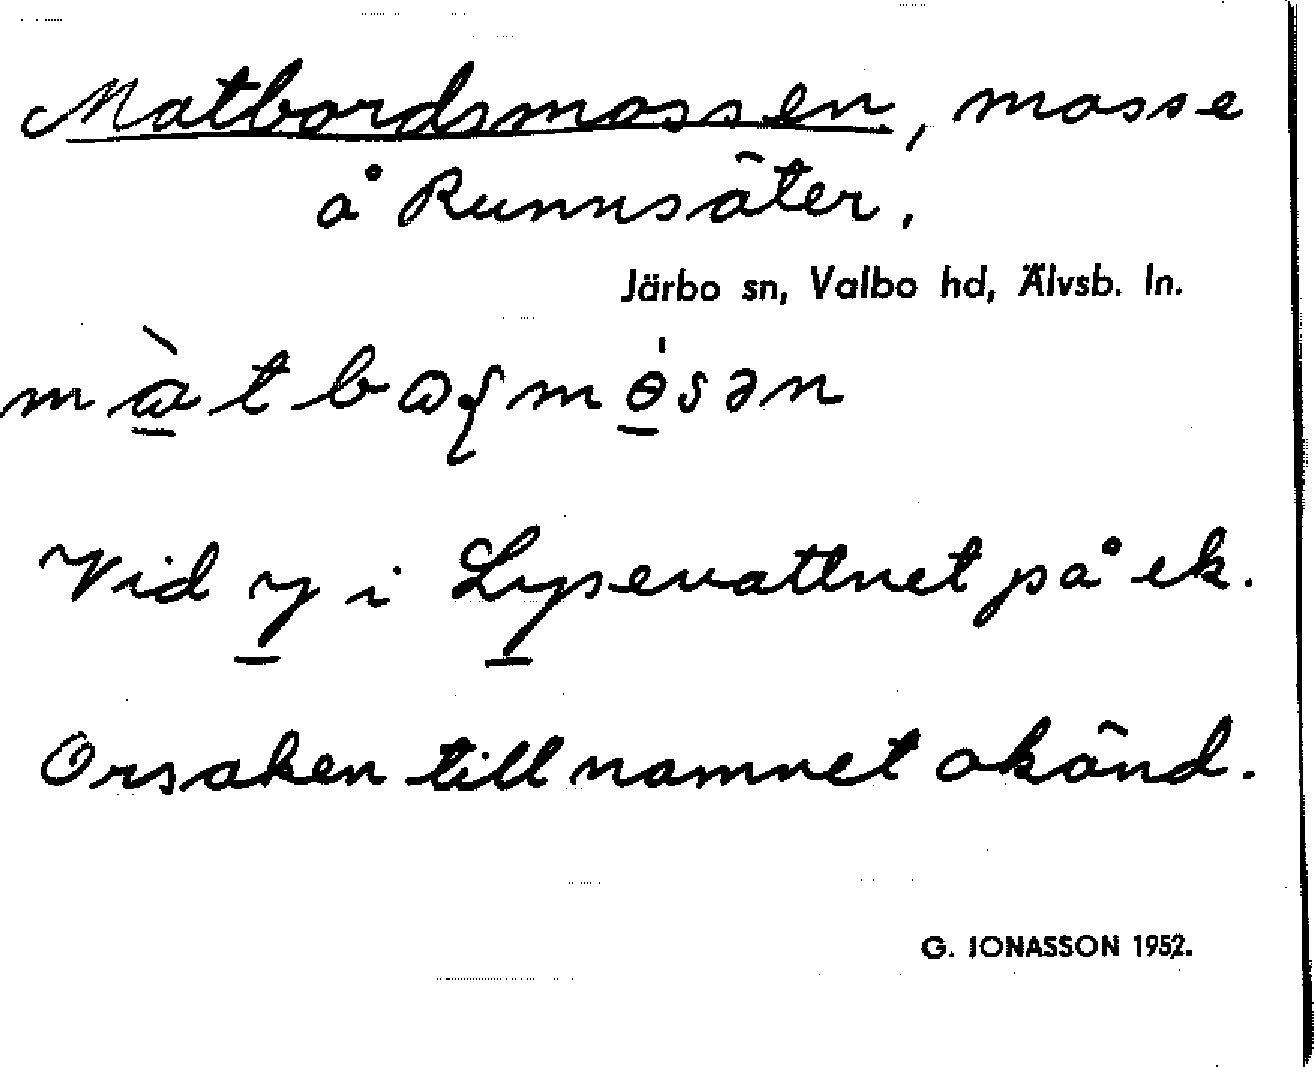 Matbordsmossen, mosse
å Runnsäter.
Järbo sn, Valbo hd, Älvsb. ln.
Vid y i Lysevattnet på ek.
Orsaken till namnet okänd.
G. JONASSON 1952.